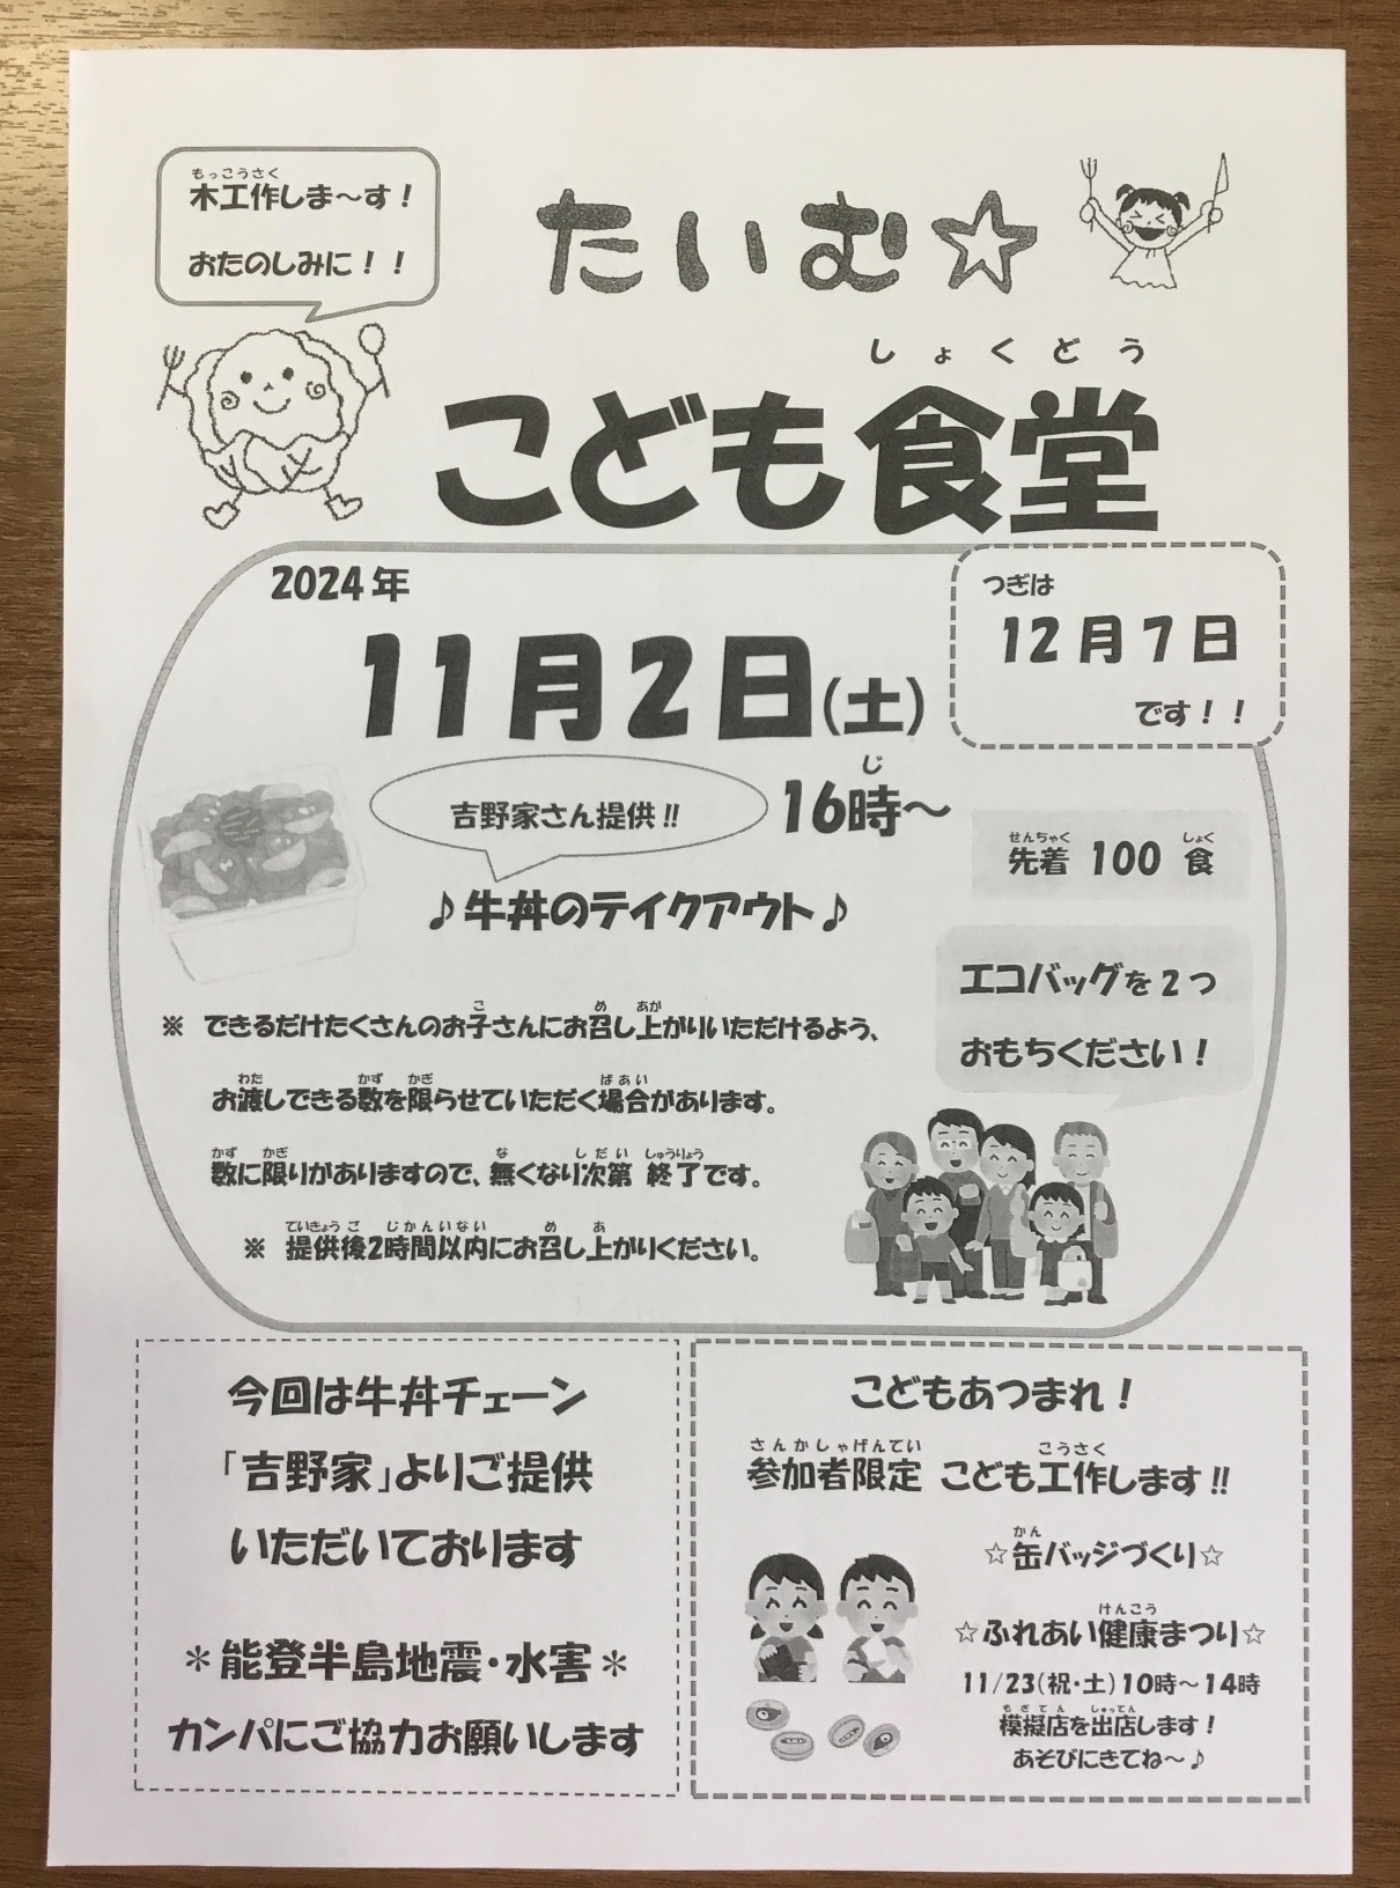 木工作しま～す！
もっこうさく
おたのしみに！！
たいむ☆
しょくどう
こども食堂
2024年
11月2日(土)
つぎは
12月7日
です！！
吉野家さん提供!!
じ
16時～
せんちゃく しょく
先着 100 食
♪牛丼のテイクアウト♪
エコバッグを2つ
おもちください！
こ め あが
※ できるだけたくさんのお子さんにお召し上がりいただけるよう、
わた かず かぎ ばあい
お渡しできる数を限らせていただく場合があります。
かず かぎ な しだい しゅうりょう
数に限りがありますので、無くなり次第 終了です。
ていきょうご じかんいない め あ
※ 提供後2時間以内にお召し上がりください。
今回は牛丼チェーン
「吉野家」よりご提供
いただいております
＊能登半島地震・水害＊
カンパにご協力お願いします
こどもあつまれ！
さんかしゃげんてい こうさく
参加者限定 こども工作します!!
かん
☆缶バッジづくり☆
けんこう
☆ふれあい健康まつり☆
11/23(祝・土)10時～14時
もぎてん しゅってん
模擬店を出店します！
あそびにきてね～♪